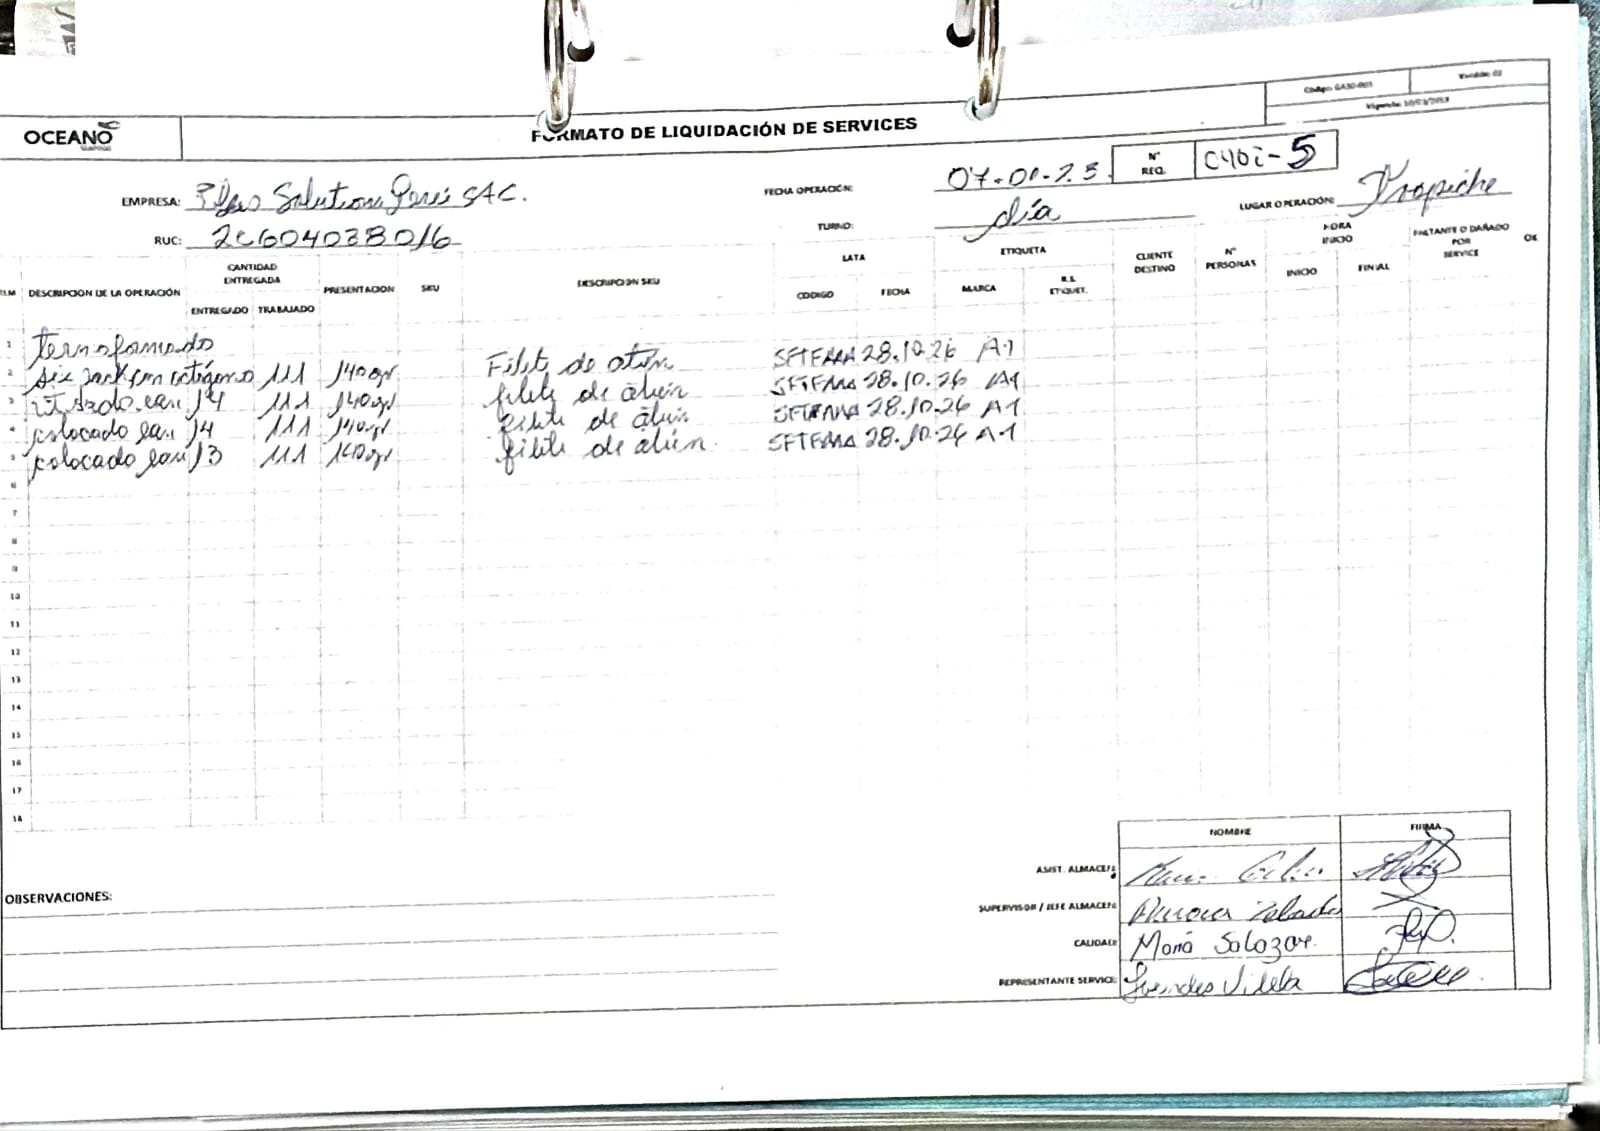 Código: GASO-003
Versión: 02
Vigencia: 10/03/2019
OCEANO
SEAFOOD
FORMATO DE LIQUIDACIÓN DE SERVICES
N° REQ.
5
EMPRESA: Solution Perú SAC.
FECHA OPERACIÓN: 07-01-23.
LUGAR OPERACIÓN: Trapiche
RUC: 20604038016
TURNO: día
ITEM DESCRIPCION DE LA OPERACIÓN CANTIDAD ENTREGADA ENTREGADO TRABAJADO PRESENTACION SKU DESCRIPCION SKU LATA CODIGO FECHA ETIQUETA MARCA R.S. ETIQUET. CLIENTE DESTINO N° PERSONAS HORA INICIO INICIO FINAL FALTANTE O DAÑADO POR SERVICE
1 termoformado
2 six pack con octógono 111 140 gr Filete de atún 28.10.26 A1
3 111 140 gr filete de atún 28.10.26 A1
4 colocado 14 111 140 gr filete de atún 28.10.26 A1
5 colocado 13 111 140 gr filete de atún 28.10.26 A1
6
7
8
9
10
11
12
13
14
15
16
17
18
NOMBRE FIRMA
ASIST. ALMACEN:
OBSERVACIONES:
SUPERVISOR / JEFE ALMACEN:
CALIDAD: María Salazar.
REPRESENTANTE SERVICE: Vilela